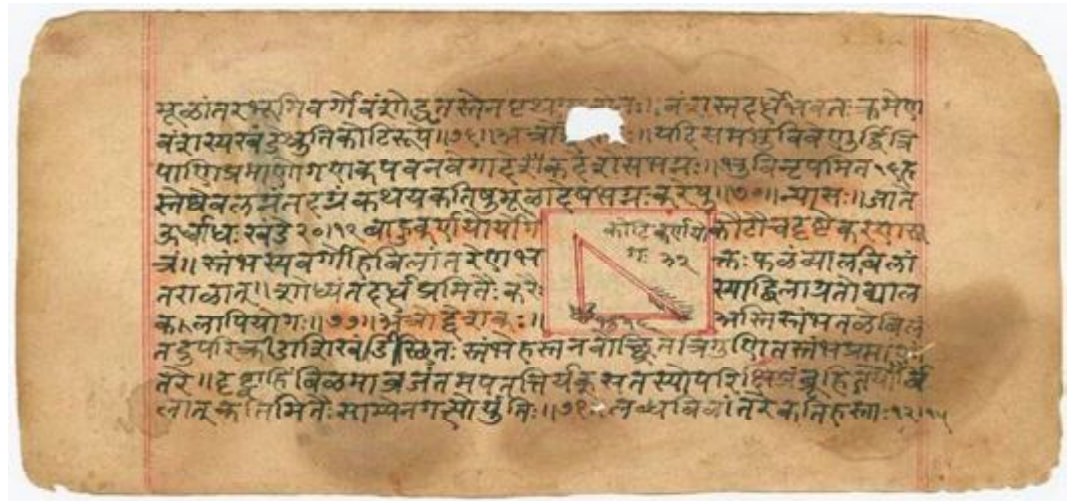 मूळांतरभूमिवर्गो वंशोद्धृतस्तेन पृथग वंशस्तदर्धेभवतः क्रमेण
वंशस्यखंडेश्रुतिकोटिरूपे॥७६॥ यदिसमभुविवेणुर्द्वित्रि
पाणिप्रमाणोगणकपवनवेगादेकदेशेसभग्नः॥भुविनृपमित १६ह
लग्नंतदग्रंकथयकतिषुमूळादेषभग्नःकरेषु॥७७॥न्यासः॥जाते
ऊर्ध्वाधःखंडे२०।१२बाहुकर्णयोर्योगे कोटौचदृष्टेकरणसू
कोटिकर्णयो
गः ३२
त्रं॥स्तंभस्यवर्गोहिबिलांतरेणभ क्तःफळंव्यालबिलां
तराळात्॥शोध्यंतदर्धप्रमितैःकरैः स्याद्बिलाग्रतोव्याल
कलापियोगः॥७७॥ अस्तिस्तंभतळेबिलं
तदुपरिक्रीडाशिखंडीस्थितःस्तंभेहस्तनवोच्छ्रितेत्रिगुणितस्तंभप्रमाणां
तरे॥दृष्ट्वाहिंबिळमाव्रजंतमपतत्तिर्यक्सतस्योपरिक्षिप्रंब्रूहितयोर्बि
लात्कतिमितैःसाम्येनगत्योर्युतिः॥७१ लब्धबिलांतरेकतिहस्ताः१२।१५